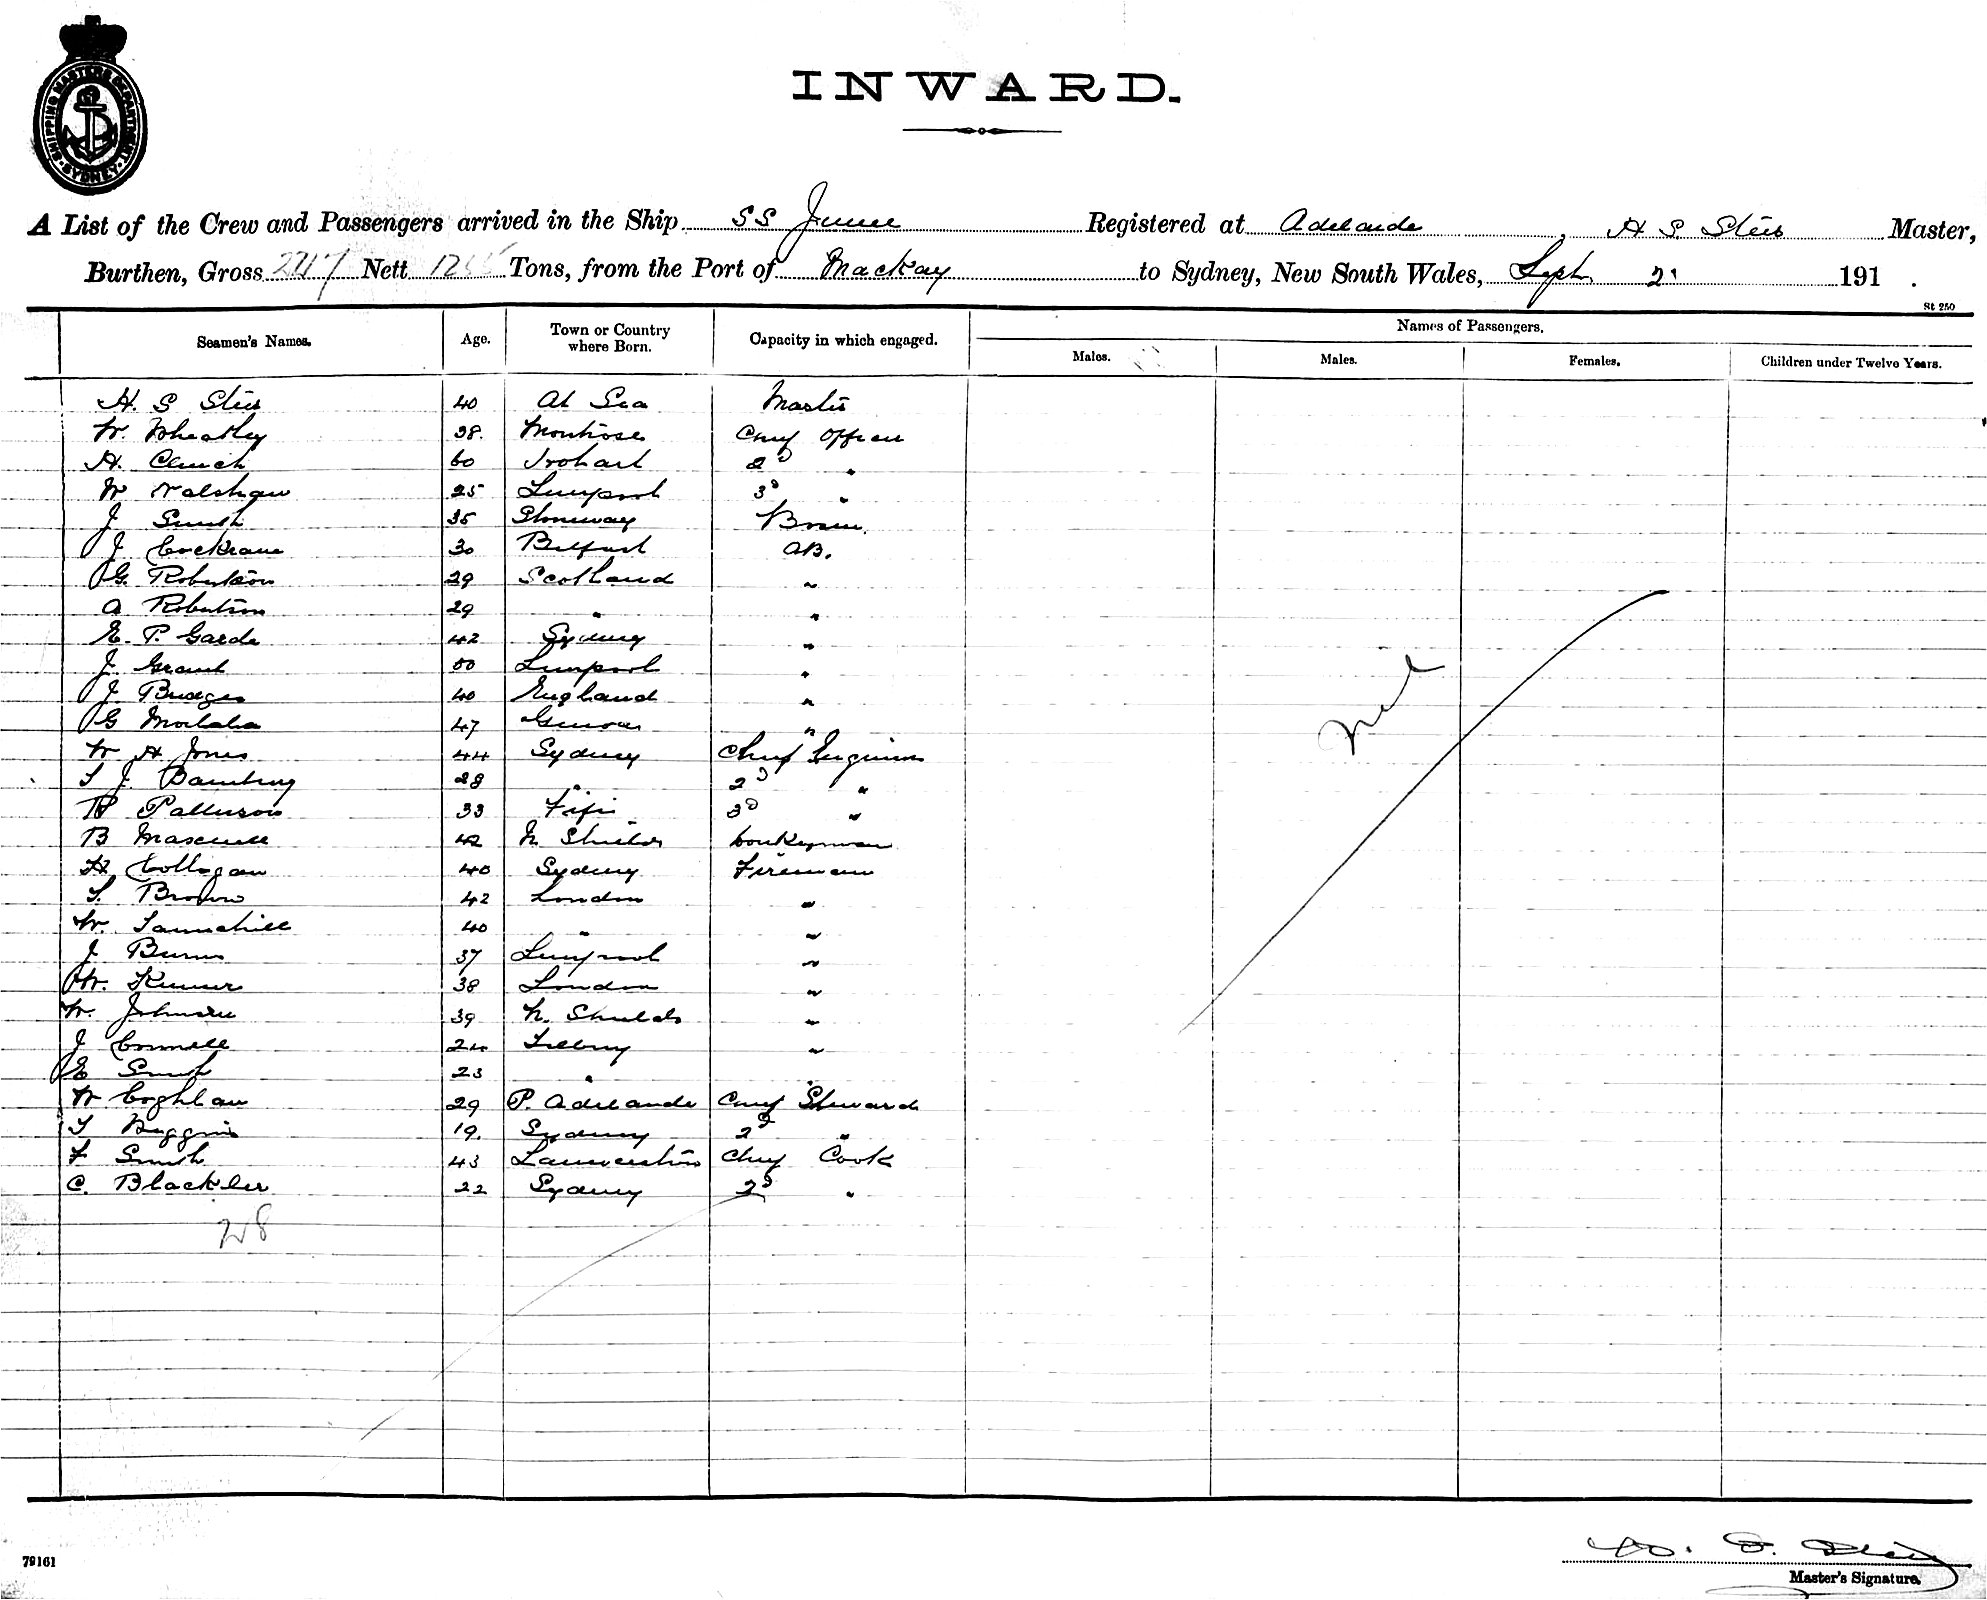 SHIPPING MASTERS DEPARTMENT SYDNEY
INWARD.
A List of the Crew and Passengers arrived in the Ship SS Junee Registered at Adelaide, H S Master,
Burthen, Gross Nett Tons, from the Port of Mackay to Sydney, New South Wales, Sept 2 191 .
St 250
Seamen's Names. Age. Town or Country where Born. Capacity in which engaged. Names of Passengers.
Males. Males. Females. Children under Twelve Years.
H. S 40 At Sea Master
W. Wheatley 38. Montrose Chief Officer
H. 60 2d "
W 25 Liverpool 3d "
J Smith 35 Bosun
J Cockrane 30 Belfast AB.
G. Robertson 29 Scotland "
A Robertson 29 " "
E. P. Garde 42 Sydney "
J. Grant 50 Liverpool "
J. Bridges 40 England "
G 47 Genoa "
W H Jones 44 Sydney Chief Engineer
T J. 28 " 2d "
R Patterson 33 Fife 3d "
B Maxwell 42 N Shields Donkeyman
H Collogan 40 Sydney Fireman
T. Brown 42 London "
W. Tannahill 40 " "
J Burns 37 Liverpool "
W. 38 London "
W. Johnson 39 N. Shields "
J Connell 24 "
E Smith 23 " "
W Coghlan 29 P. Adelaide Chief Steward
T Higgins 19. Sydney 2d "
F Smith 43 Launceston Chief Cook
C. Blackler 22 Sydney 2d "
Nil
28
79161
Master's Signature.